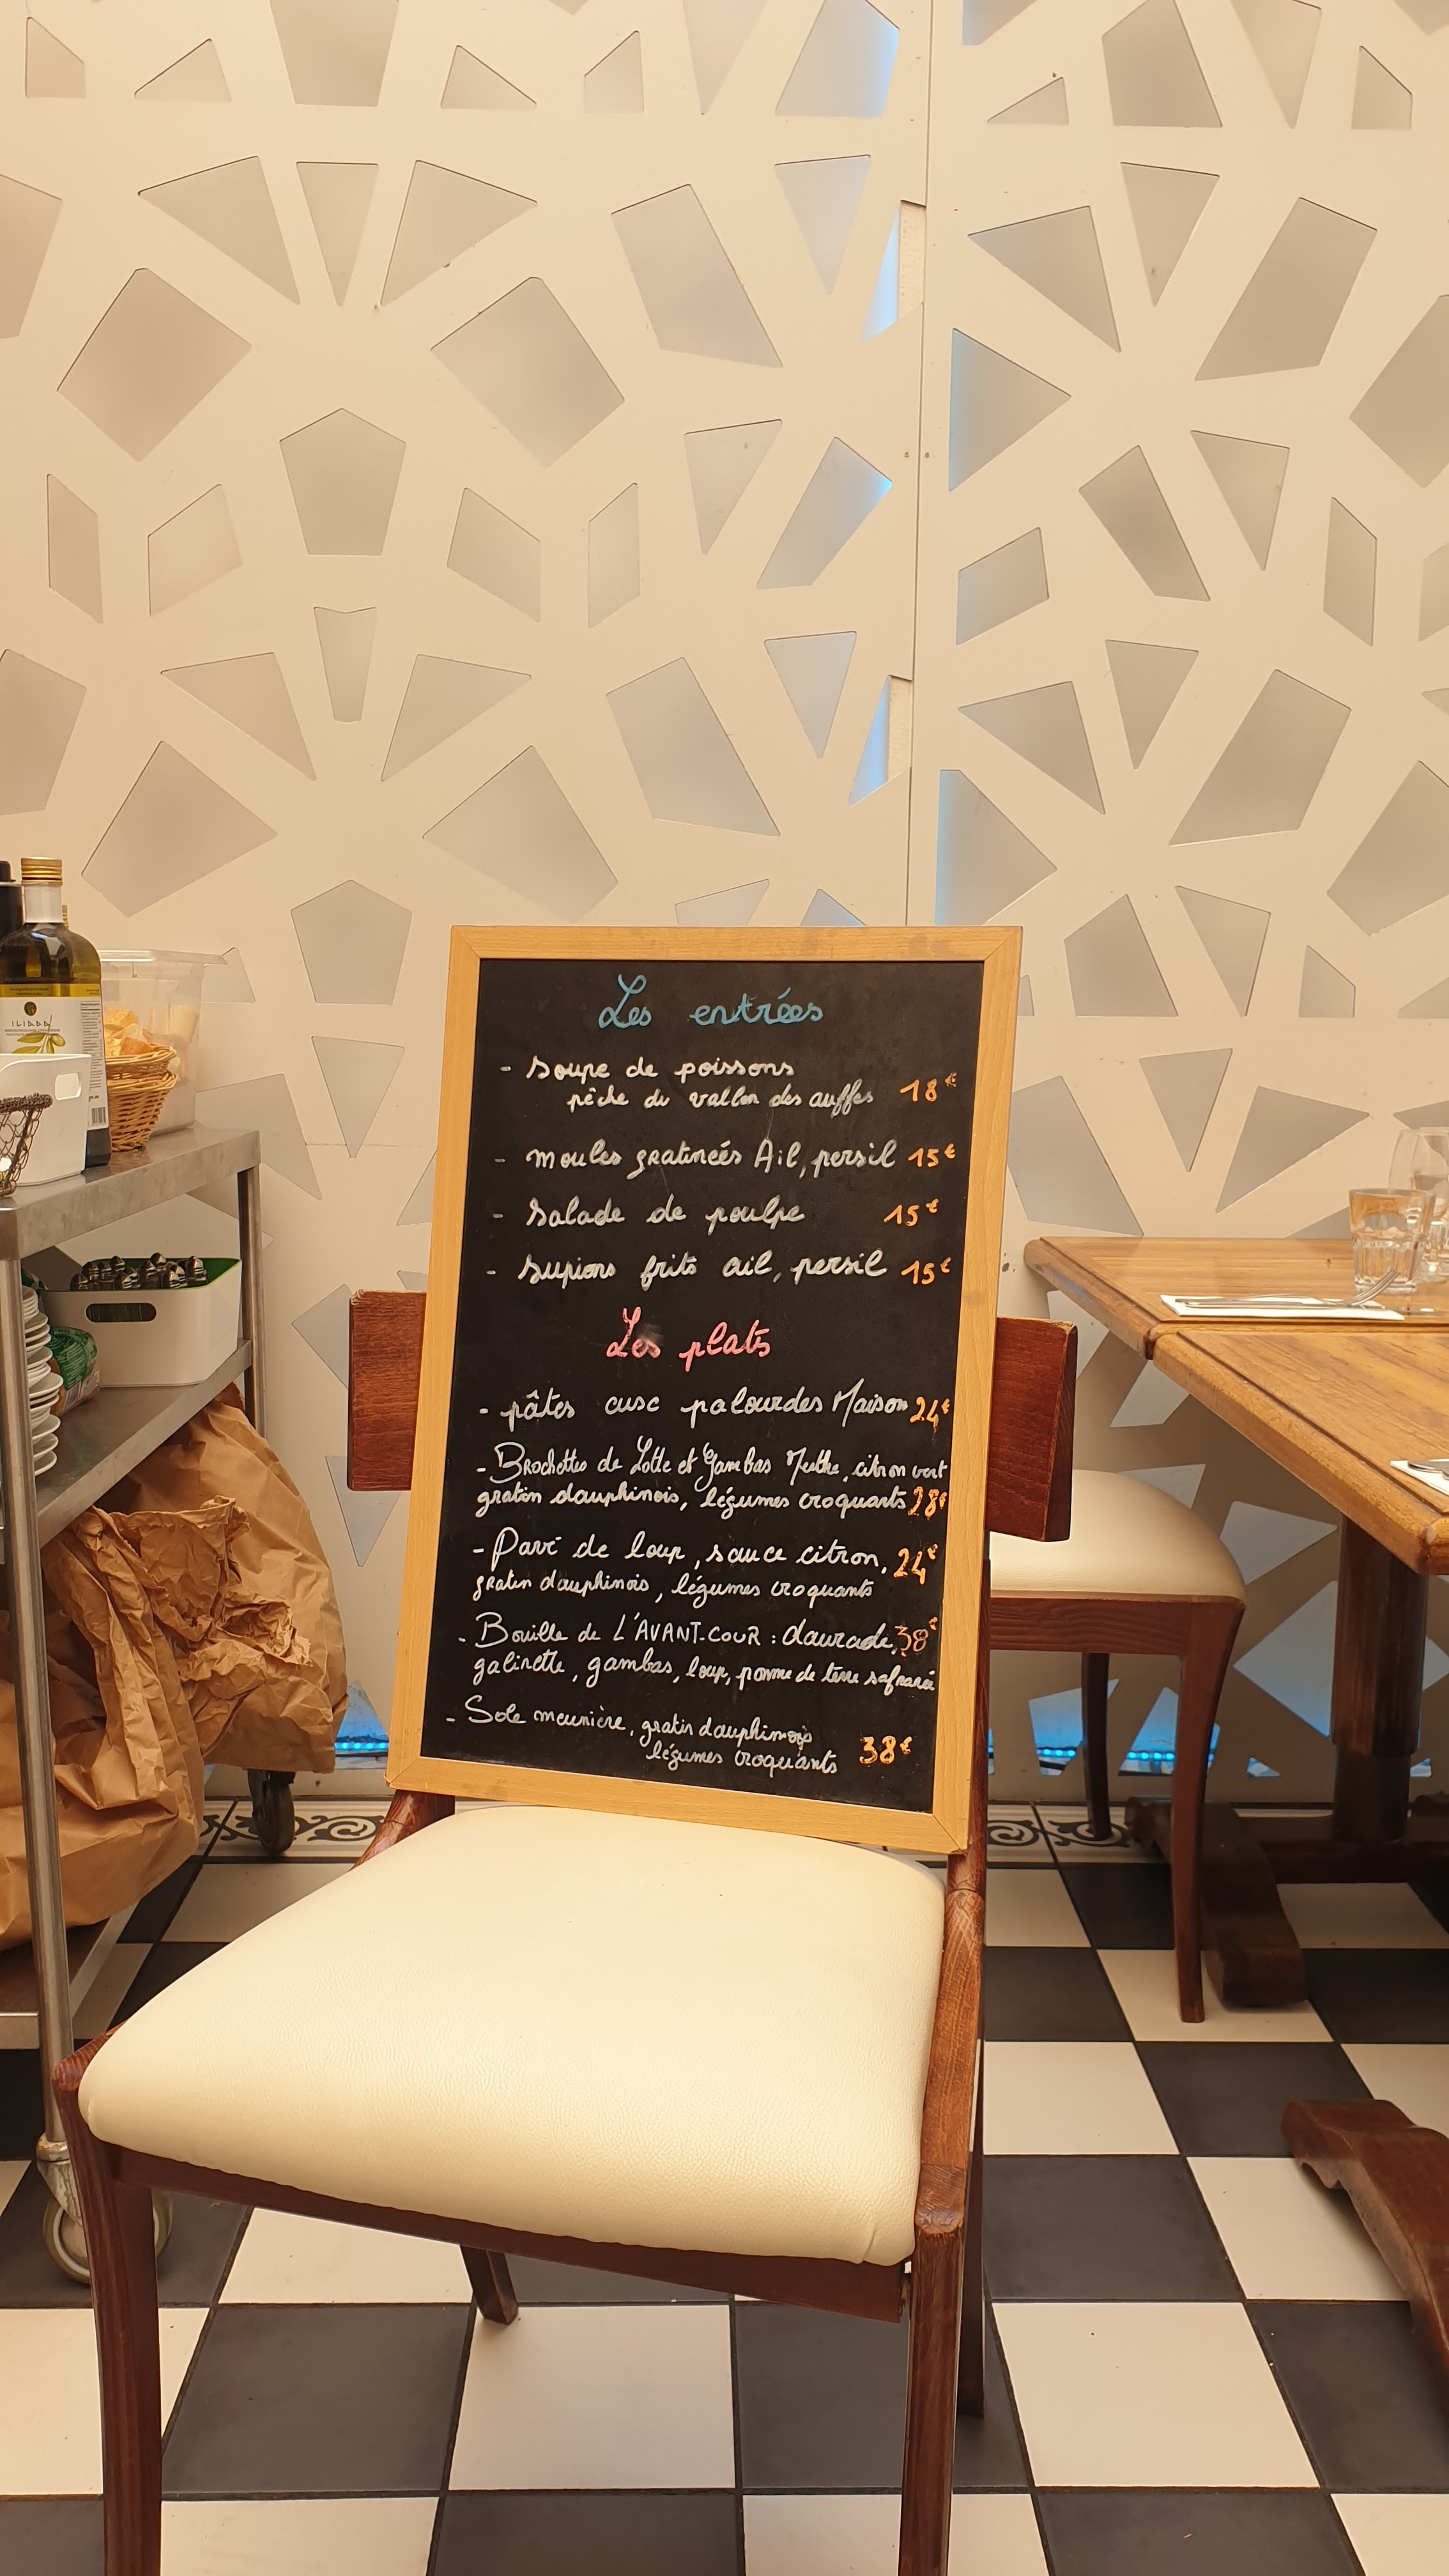 ILIADA
Les entrées
- Soupe de poissons
pêche du vallon des auffes 18€
- moules gratinées Ail, persil 15€
- Salade de poulpe 15€
- Supions frits ail, persil 15€
Les plats
- pâtes avec palourdes Maison 24€
- Brochettes de Lotte et Gambas Menthe, citron vert
gratin dauphinois, légumes croquants 28€
- Pavé de loup, sauce citron, 24€
gratin dauphinois, légumes croquants
- Bouille de L'AVANT-COUR : daurade, 38€
galinette, gambas, loup, pomme de terre safrané
- Sole meunière, gratin dauphinois
légumes croquants 38€